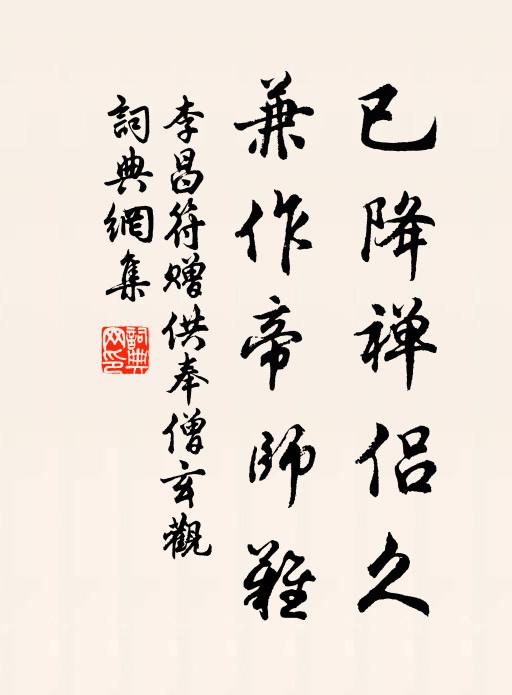 已降禅侣久
兼作帝師難
李昌符赠供奉僧玄觀
詞典網集
詞典網印